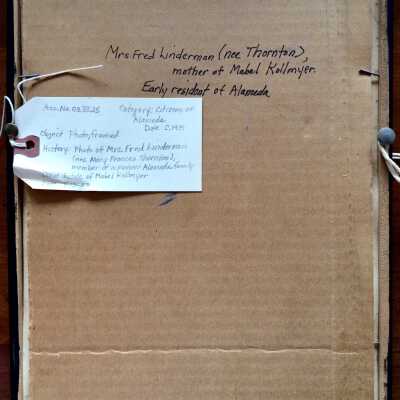 Mrs. Fred Linderman (nee Thornton),
mother of Mabel Kollmyer.
Early resident of Alameda
Acc. No. Category: Citizens of
Alameda
Date
Object: Photo, framed
History: Photo of Mrs. Fred Linderman
(nee Mary Frances Thornton),
member of a pioneer Alameda family
of Mabel Kollmyer